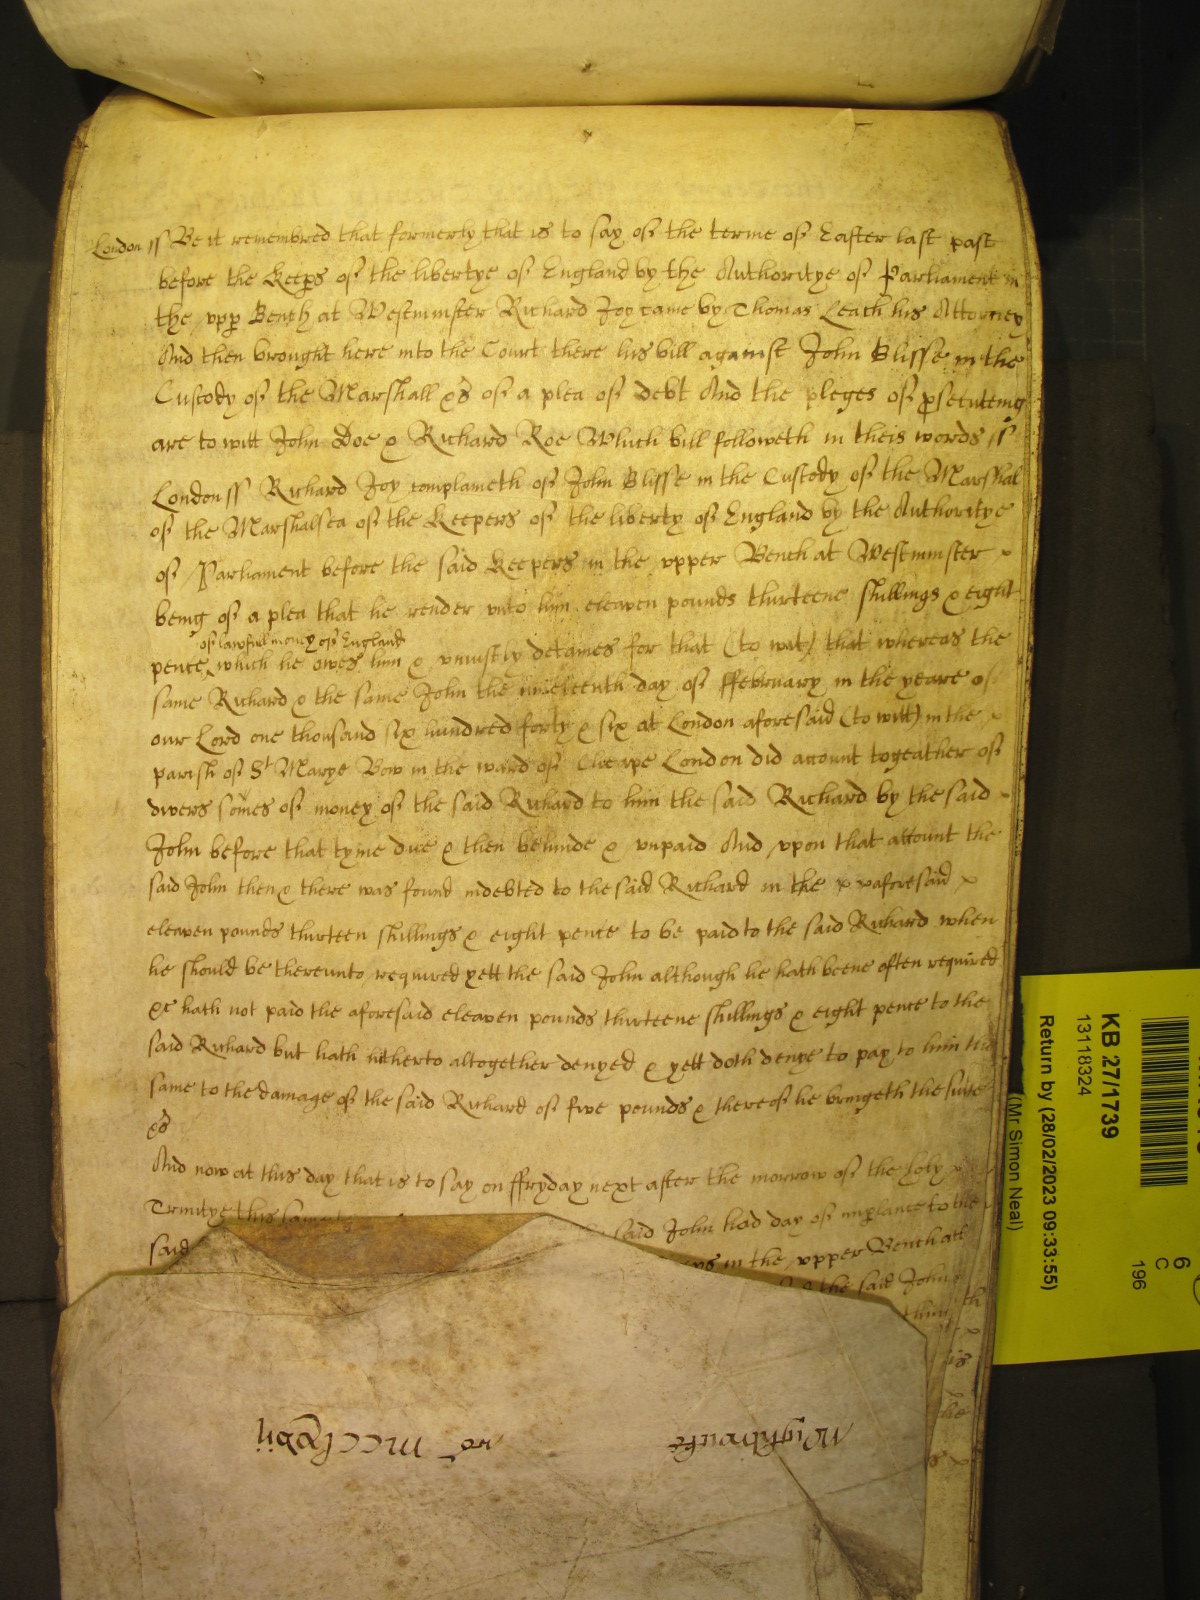 London ss Be it remembred that formerly that is to say of the terme of Easter last past
before the Keeps of the libertye of England by the Authoritye of Parliament in
the upp Bench at Westminster Richard Joy came by Thomas Leach his Attorney
And then brought here into the Court there his bill against John Blisse in the
Custody of the Marshall &c of a plea of debt And the pleges of psecuteing
are to witt John Doe & Richard Roe Which bill followeth in theis words ss
London ss Richard Joy complaineth of John Blisse in the Custody of the Marshal
of the Marshalsea of the Keepers of the liberty of England by the Authoritye
of Parliament before the said Keepers in the upper Bench at Westminster
being of a plea that he render unto him eleaven pounds thirteene shillings & eight
of lawfull money of England
pence which he owes him & uniustly detaines for that (to wit) that whereas the
same Richard & the same John the nineteenth day of ffebruary in the yeare of
our Lord one thousand six hundred forty & six at London aforesaid (to witt) in the
parish of St Marye Bow in the ward of Cheape London did account togeather of
divers somes of money of the said Richard to him the said Richard by the said
John before that tyme due & then behinde & unpaid And upon that account the
said John then & there was found indebted to the said Richard in the aforesaid
eleaven pounds thirteen shillings & eight pence to be paid to the said Richard when
he should be thereunto required yett the said John although he hath beene often required
&c hath not paid the aforesaid eleaven pounds thirteene shillings & eight pence to the
said Richard but hath hitherto altogether denyed & yett doth denye to pay to him the
same to the damage of the said Richard of five pounds & thereof he bringeth the suite
&c
And now at this day that is to say on ffryday next after the morrow of the holy
Trinitye this said John had day of implance to the
said in the upper Bench att
& the said John
KB 27/1739
13118324
Return by (28/02/2023 09:33:55)
(Mr Simon Neal)
6
C
196